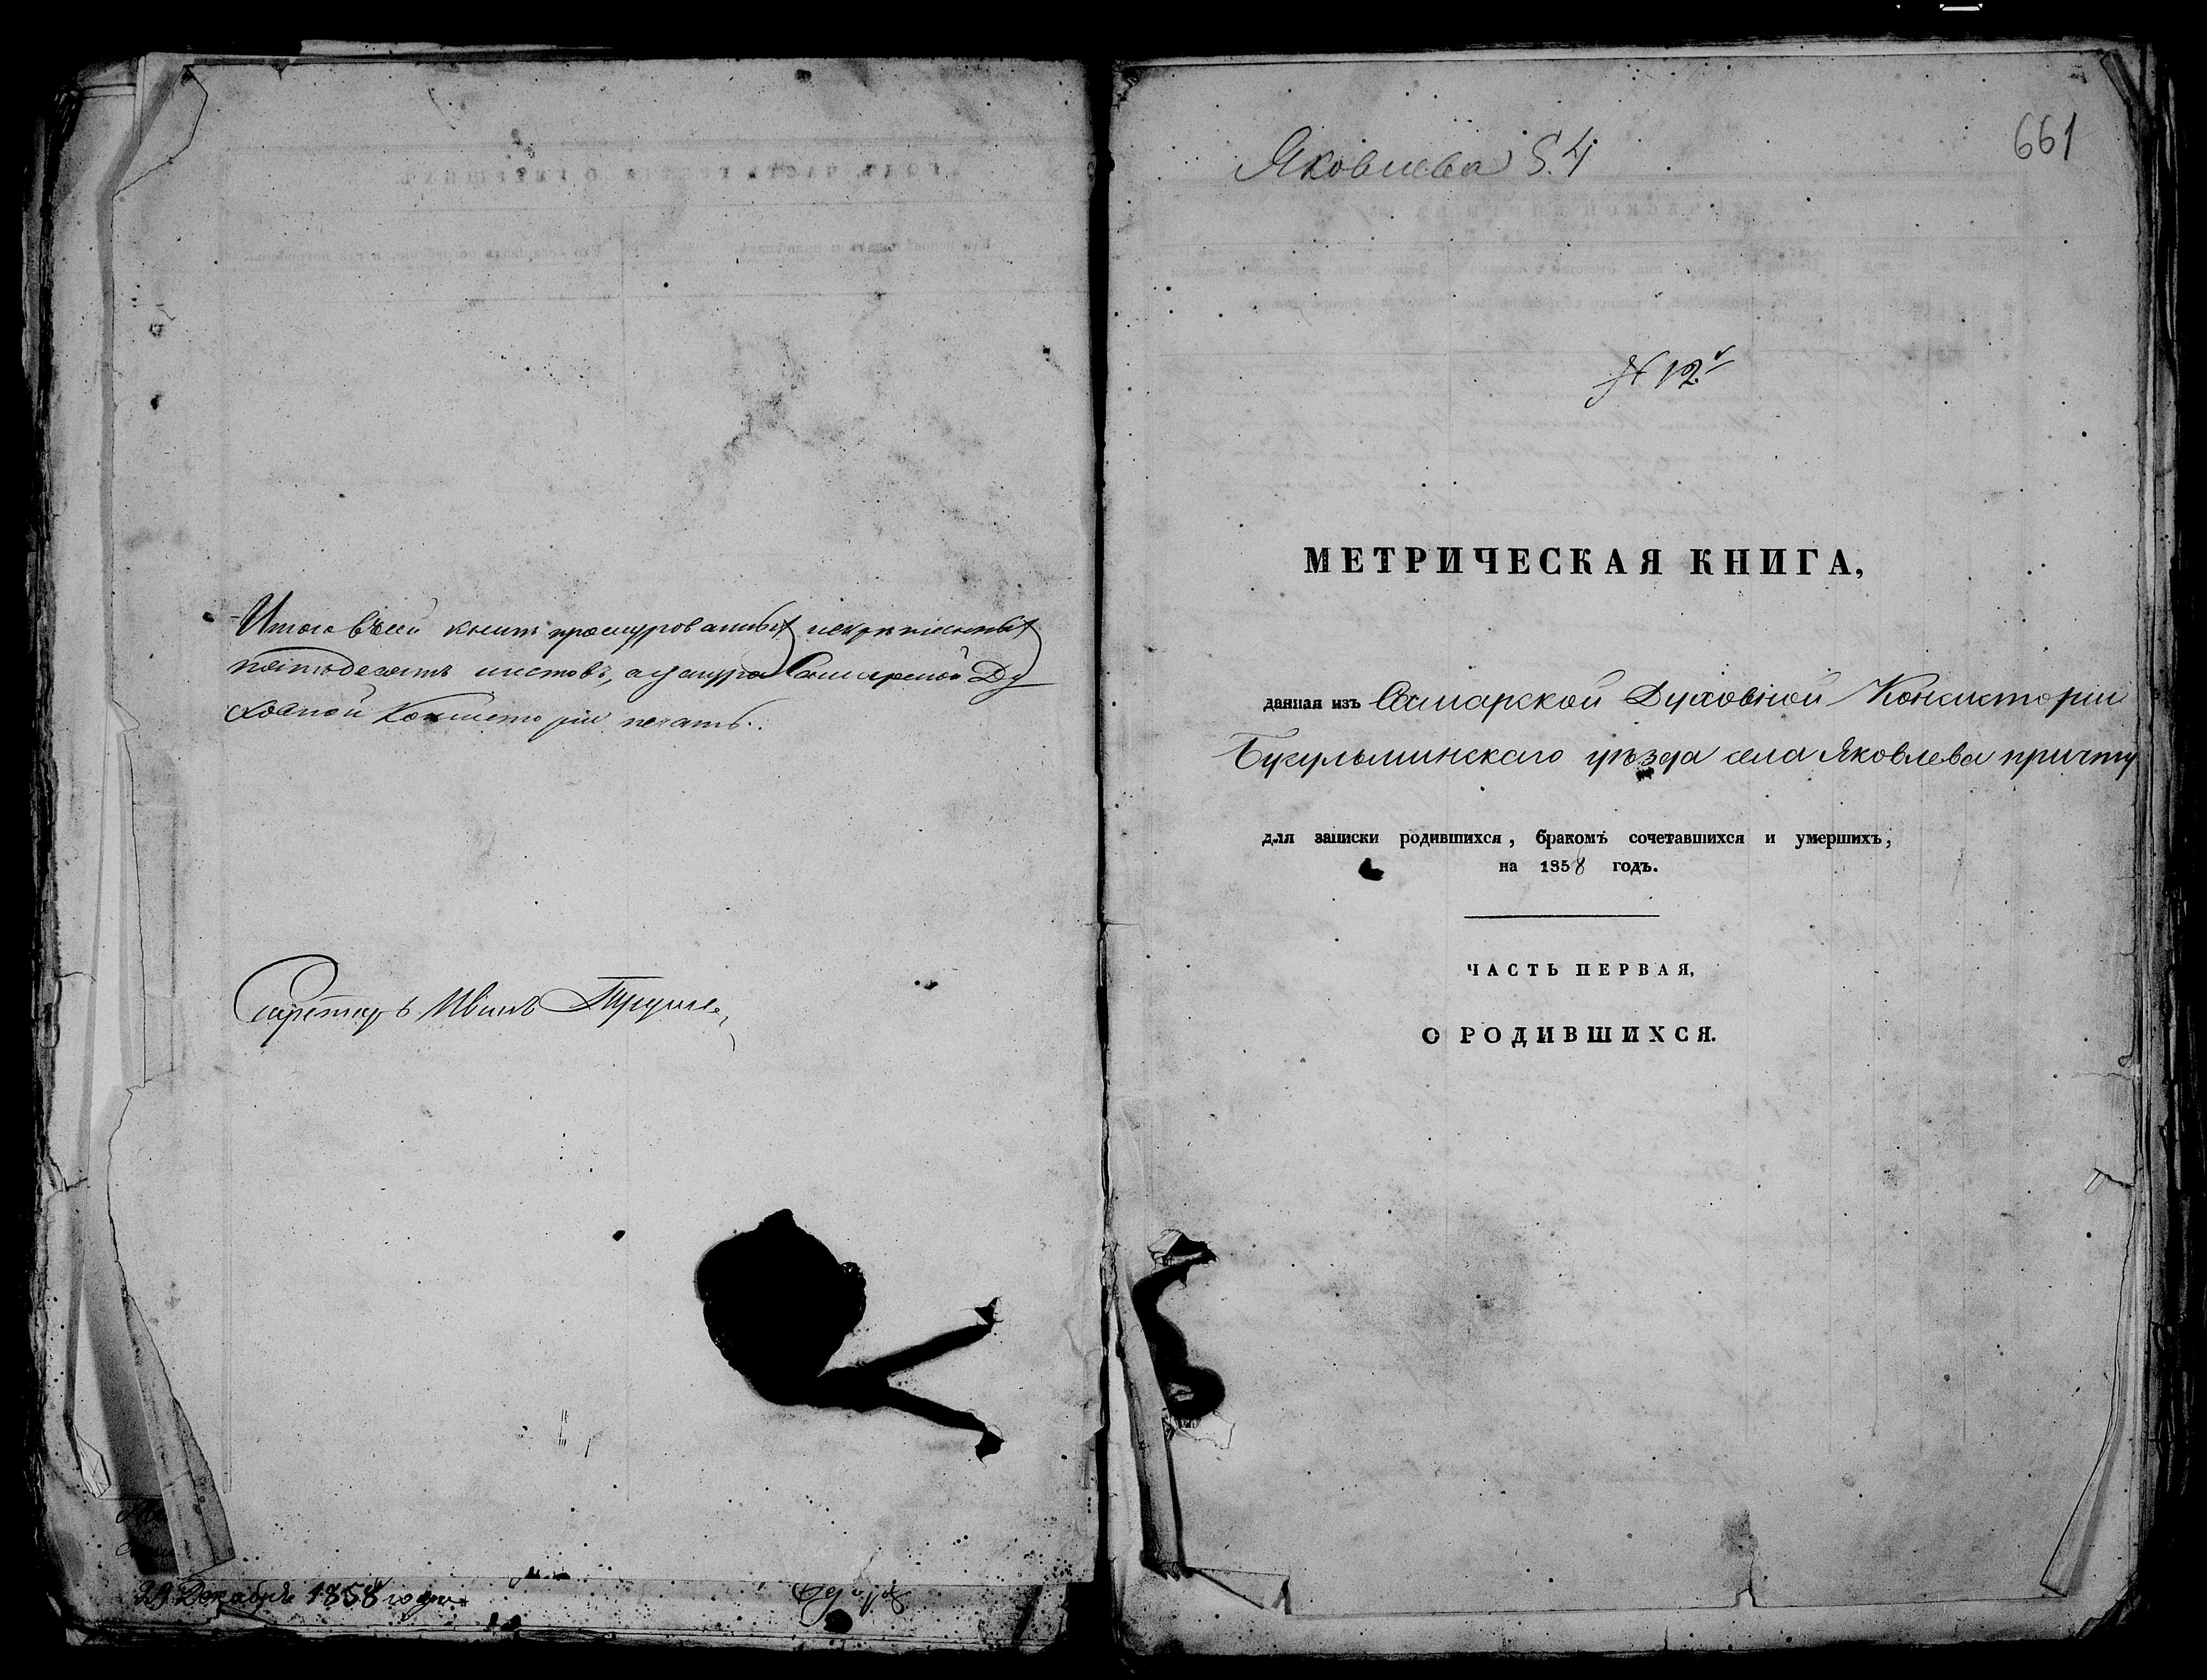 Итого въ сей книгѣ прошнурованныхъ и скрѣпленныхъ
пятьдесятъ листовъ, а у шнура Самарской Ду
ховной Консисторіи печать.
Секретарь Иванъ
29 Декабря 1858 года
661
Яковлева
№ 12
МЕТРИЧЕСКАЯ КНИГА,
данная изъ Самарской Духовной Консисторіи
Бугульминскаго уѣзда села Яковлева причту
для записки родившихся, бракомъ сочетавшихся и умершихъ,
на 1858 годъ.
ЧАСТЬ ПЕРВАЯ,
О РОДИВШИХСЯ.